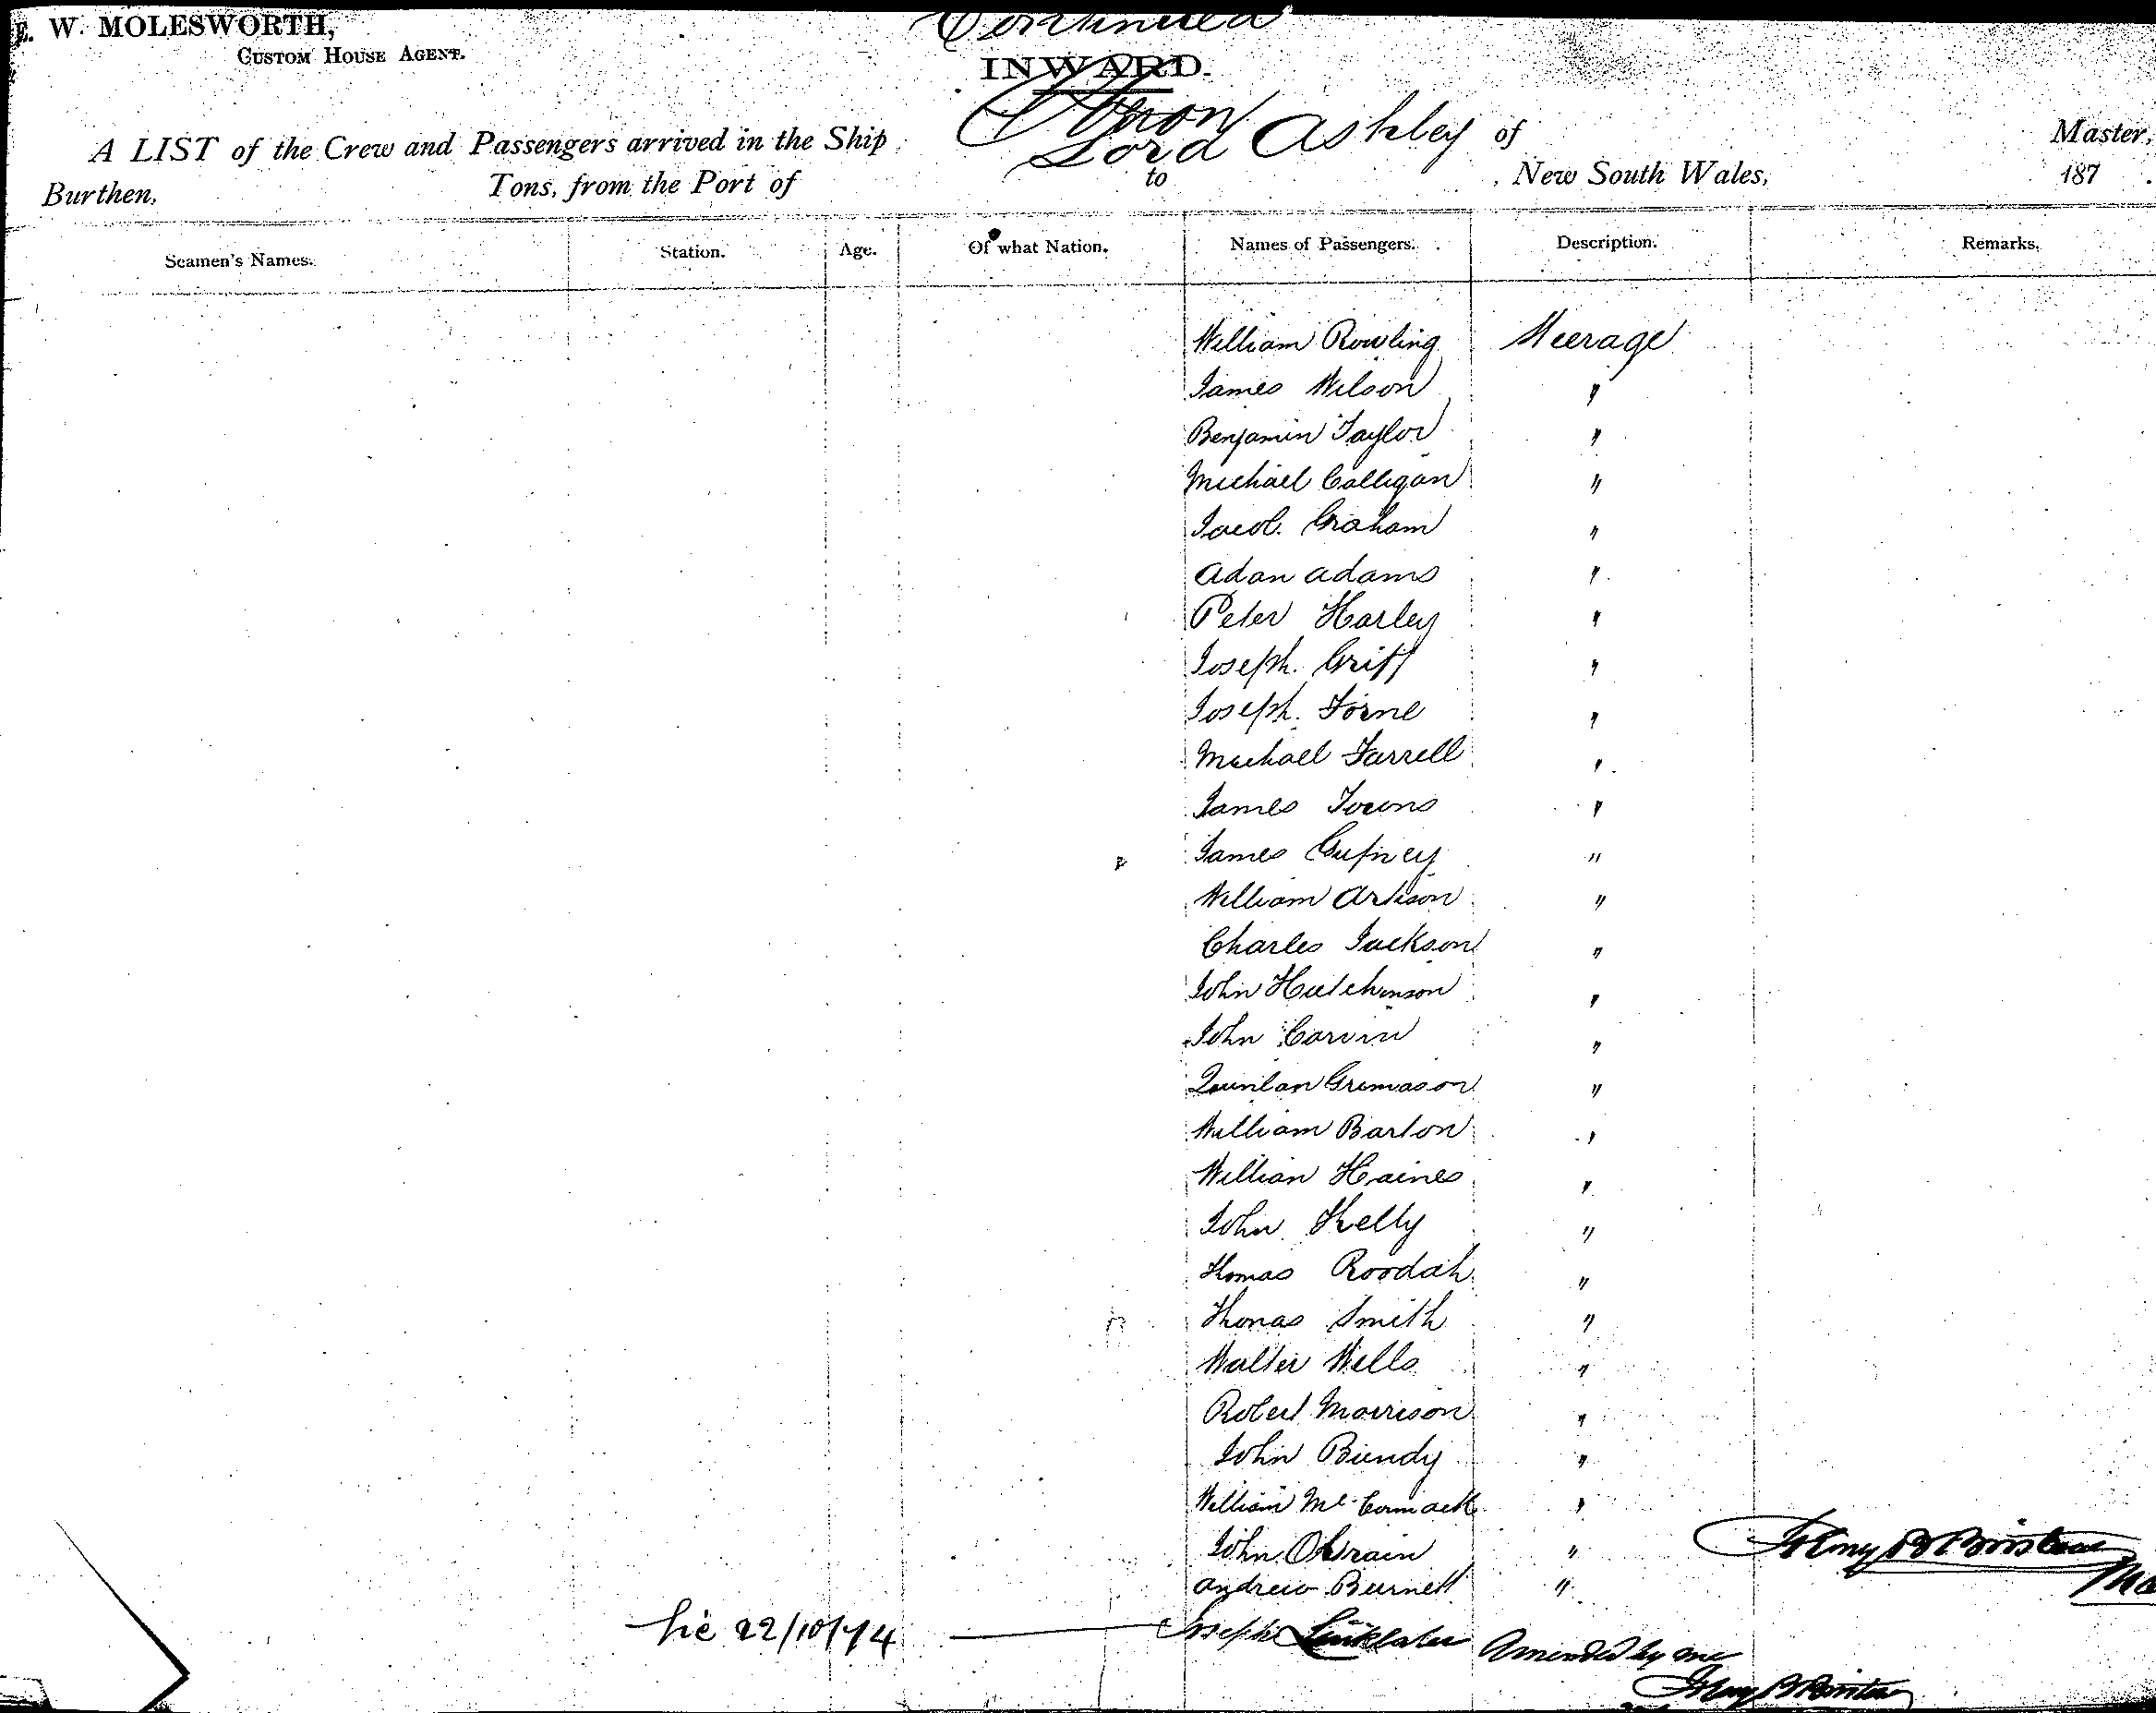 E. W. MOLESWORTH,
CUSTOM HOUSE AGENT.
Continued
INWARD.
A LIST of the Crew and Passengers arrived in the Ship Lord Ashley of Master,
Burthen, Tons, from the Port of to New South Wales, 187 .
Seamen's Names. Station. Age. Of what Nation. Names of Passengers. Description. Remarks.
William Rowling Steerage
James Wilson "
Benjamin Taylor "
Michael Calligan "
Jacob Graham "
Adan Adams "
Peter Harley "
Joseph Griff "
Joseph Forne "
Michael Farrell "
James Towns "
James Gufney "
William Artison "
Charles Jackson "
John Hutchinson "
John Carvin "
Quinlan Grimason "
William Barton "
Willian Haines "
John Kelly "
Thomas Roodah "
Thomas Smith "
Walter Wells "
Robert Morrison "
John Bundy "
William McCormack "
John OBrain "
Andrew Burnett "
22/10/74 Joseph Linklater Amended by me